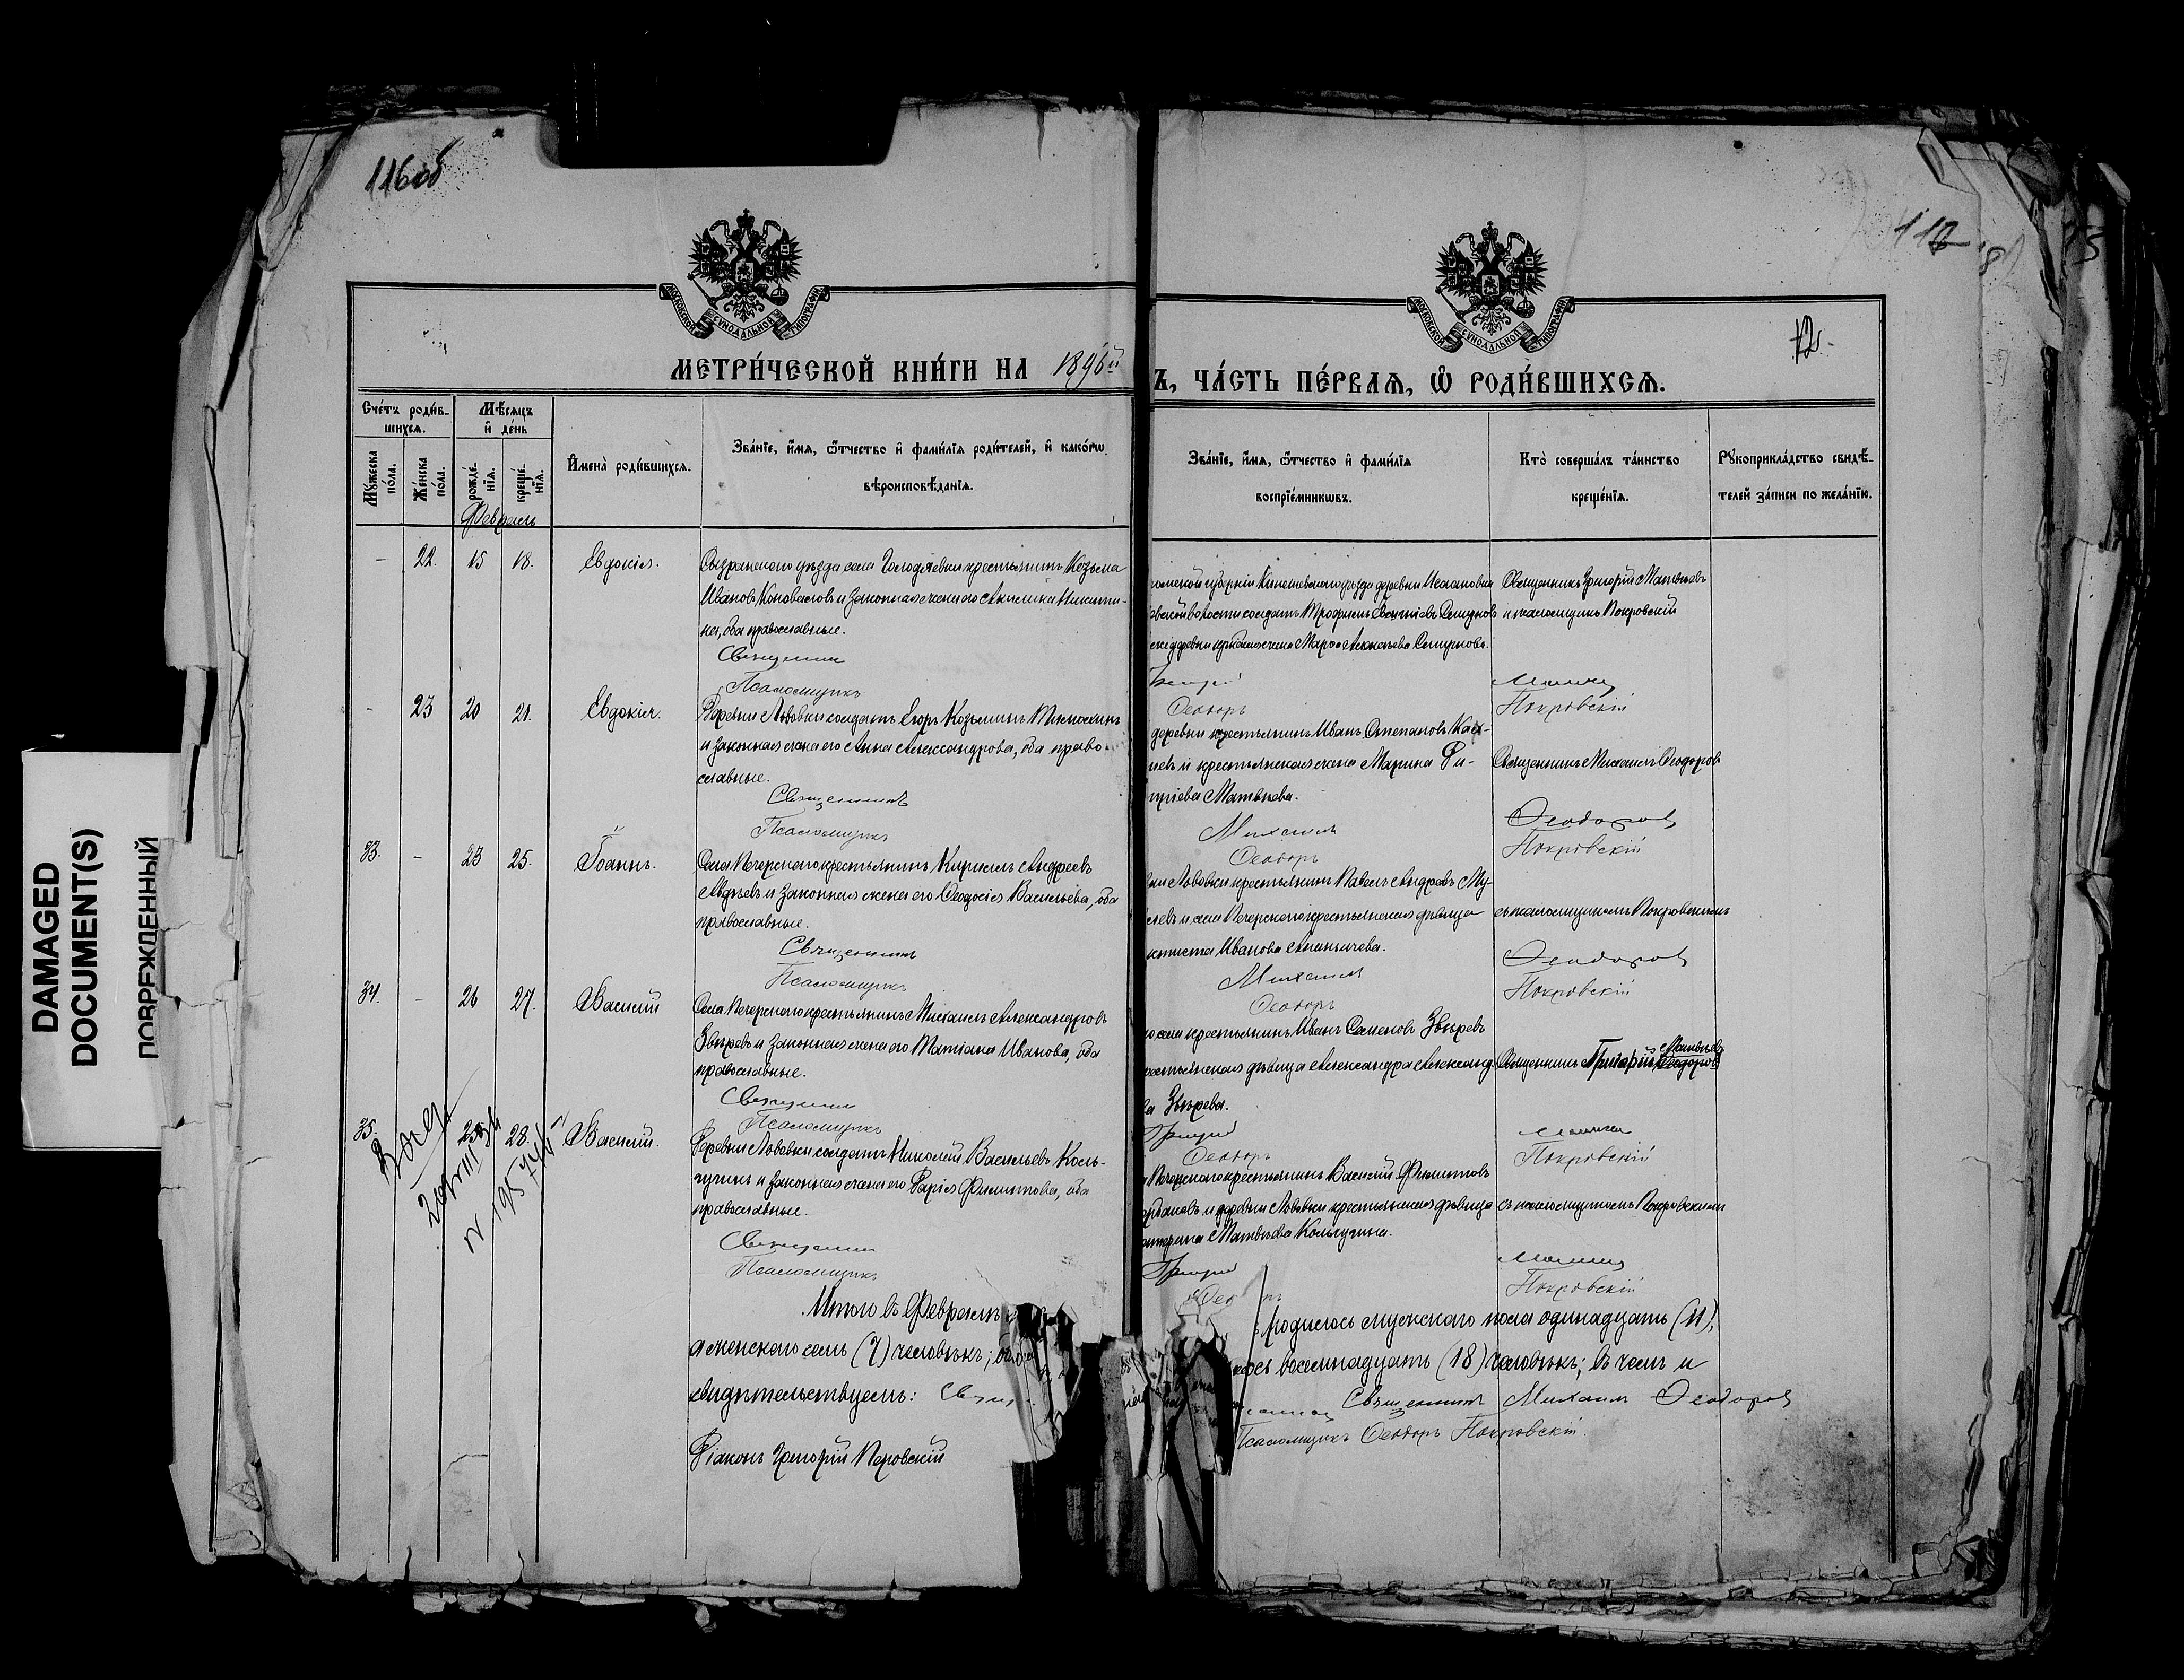 116об
117
12.
МОСКОВСКОЙ СУНОДАЛЬНОЙ ТИПОГРАФІИ
МОСКОВСКОЙ СУНОДАЛЬНОЙ ТИПОГРАФІИ
МЕТРИ́ЧЕСКОЙ КНИ́ГИ НА 1896й
Ъ, ЧА́СТЬ ПЕ́РВАЯ, Ѡ РОДИ́ВШИХСЯ.
Сче́тъ роди́в-
шихся.
Му́жеска по́ла.
Же́нска по́ла.
Мѣ́сяцъ
и де́нь
рожде́-
нія.
креще́-
нія.
Имена̀ роди́вшихся.
Зва́ніе, и́мя, ѻ́тчество и фами́лія роди́телей, и како́гѡ
вѣроисповѣ́данія.
Зва́ніе, и́мя, ѻ́тчество и фами́лія
воспріе́мниковъ.
Кто̀ соверша́лъ та́инство
креще́нія.
Рукоприкла́дство свидѣ́-
телей за́писи по жела́нію.
Февраль
– 22. 15 18. Евдокія.
Сызранскаго уѣзда села Голодяевки крестьянинъ Козьма
Ивановъ Коноваловъ и законная жена его Акилина Никити-
на, оба православные.
Священникъ
Псаломщикъ
ромской губерніи Кинешемскаго уѣзда деревни
волости солдатъ Трофимъ
деревни жена Марѳа Смирнова.
Григорій
Ѳеодоръ
Священникъ Григорій Матвѣевъ
и псаломщикъ Покровскій
Покровскій
- 23 20 21. Евдокія.
Деревни Львовки солдатъ Егоръ Козьминъ
и законная жена его Анна Александрова, оба право-
славные.
Священникъ
Псаломщикъ
деревни крестьянинъ Иванъ Степановъ
и крестьянская жена Марина Ди-
митріева Матвѣева.
Михаилъ
Ѳеодоръ
Священникъ Михаилъ Ѳеодоровъ
Ѳеодоровъ
Покровскій
33. – 23 25. Іоаннъ.
Села Печерскаго крестьянинъ Кириллъ Андреевъ
Авдѣевъ и законная жена его Ѳеодосія Васильева, оба
православные.
Священникъ
Псаломщикъ
Львовки крестьянинъ Павелъ Андреевъ Му-
и села Печерскаго крестьянская дѣвица
Иванова Ананьичева.
Михаилъ
Ѳеодоръ
съ псаломщикомъ Покровскимъ
Ѳеодоровъ
Покровскій
34. – 26 27. Василій
Села Печерскаго крестьянинъ Михаилъ Александровъ
Звѣревъ и законная жена его Татіана Иванова, оба
православные.
Священникъ
Псаломщикъ
села крестьянинъ Иванъ Семеновъ Звѣревъ
крестьянская дѣвица Александра Александ-
ва Звѣрева.
Григорій
Ѳеодоръ
Матвѣевъ
Священникъ Григорій Ѳеодоровъ
Покровскій
35. 28. Василій.
Деревни Львовки солдатъ Николай Васильевъ Коль-
чугинъ и законная жена его Дарія Филиппова, оба
православные.
Священникъ
Псаломщикъ
Печерскаго крестьянинъ Василій Филипповъ
и деревни Львовки крестьянская дѣвица
Матвѣева Кольчугина.
Григорій
съ псаломщикомъ Покровскимъ
Покровскій
Итого въ Февралѣ родилось мужскаго пола одинадцать (11),
а женскаго семь (7) человѣкъ; восемнадцать (18) человѣкъ; въ чемъ и
свидѣтельствуемъ: Священникъ Михаилъ Ѳеодоровъ
Діаконъ Григорій Перовскій Псаломщикъ Ѳеодоръ Покровскій.
DAMAGED
DOCUMENT(S)
ПОВРЕЖДЕННЫЙ